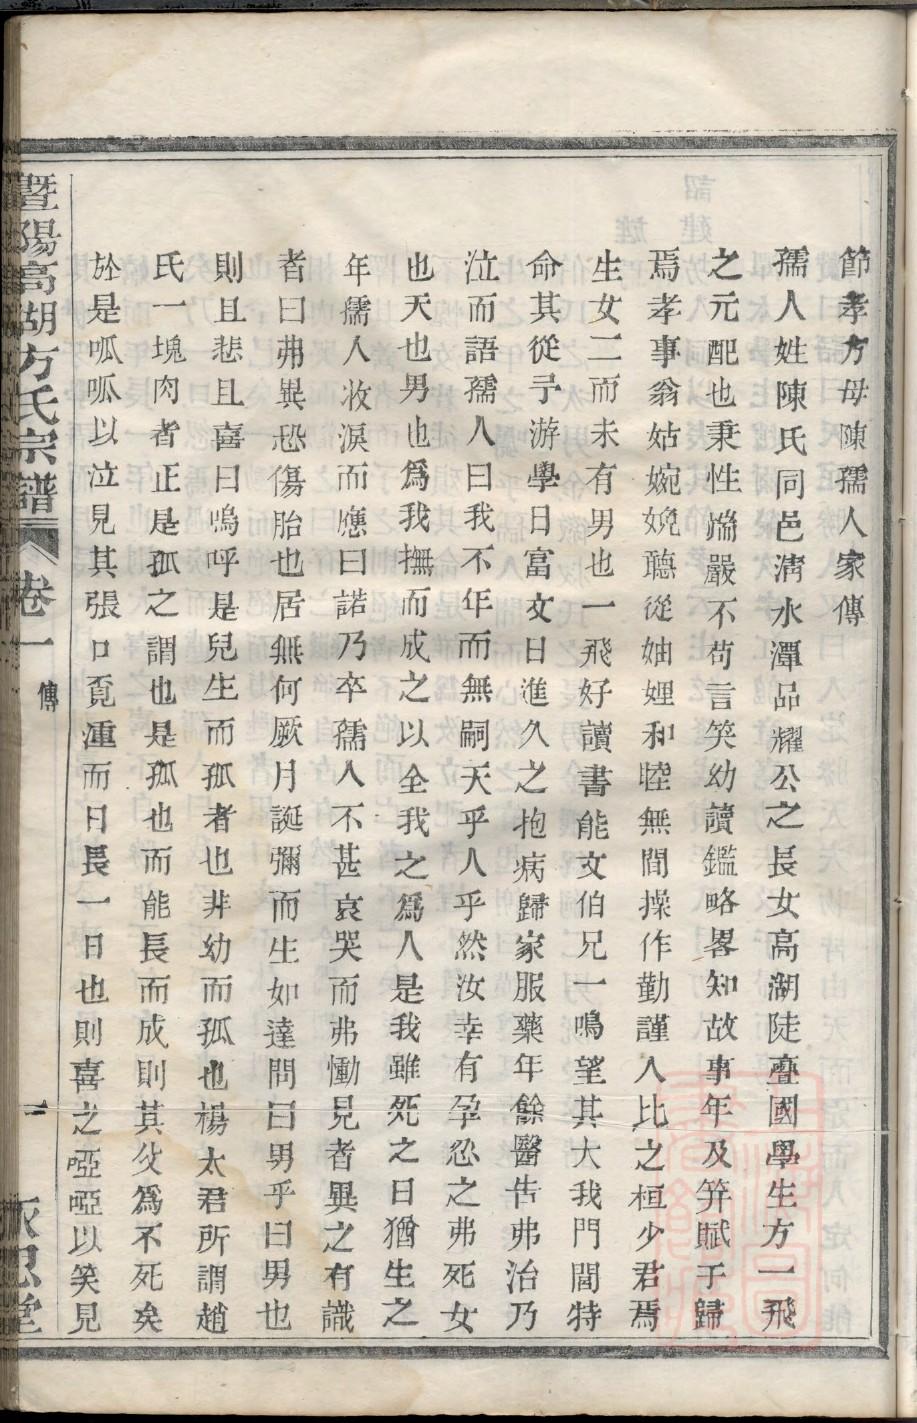 節孝方母陳孺人家傳
孺人姓陳氏同邑濟水潭品耀公之長女高湖陡亹國學生方一飛
之元配也秉性端嚴不苟言笑幼讀鑑略畧知故事年及笄賦于歸
焉孝事翁姑婉娩聽從妯娌和睦無間操作勤謹人比之桓少君焉
生女二而未有男也一飛好讀書能文伯兄一鳴望其大我門閭特
命其從予游學日富文日進久之抱病歸家服藥年餘醫告弗治乃
泣而語孺人曰我不年而無嗣天乎人乎然汝幸有孕忍之弗死女
也天也男也爲我撫而成之以全我之爲人是我雖死之日猶生之
年孺人收淚而應曰諾乃卒孺人不甚哀哭而弗慟見者異之有識
者曰弗異恐傷胎也居無何厥月誕彌而生如達問曰男乎曰男也
則且悲且喜曰嗚呼是兒生而孤者也非幼而孤也楊太君所謂趙
氏一塊肉者正是孤之謂也是孤也而能長而成則其父爲不死矣
於是呱呱以泣見其張口覓湩而日長一日也則喜之啞啞以笑見
暨陽高湖方氏宗譜 卷一 傳 一